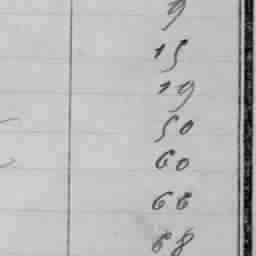 9
15
19
50
60
66
68